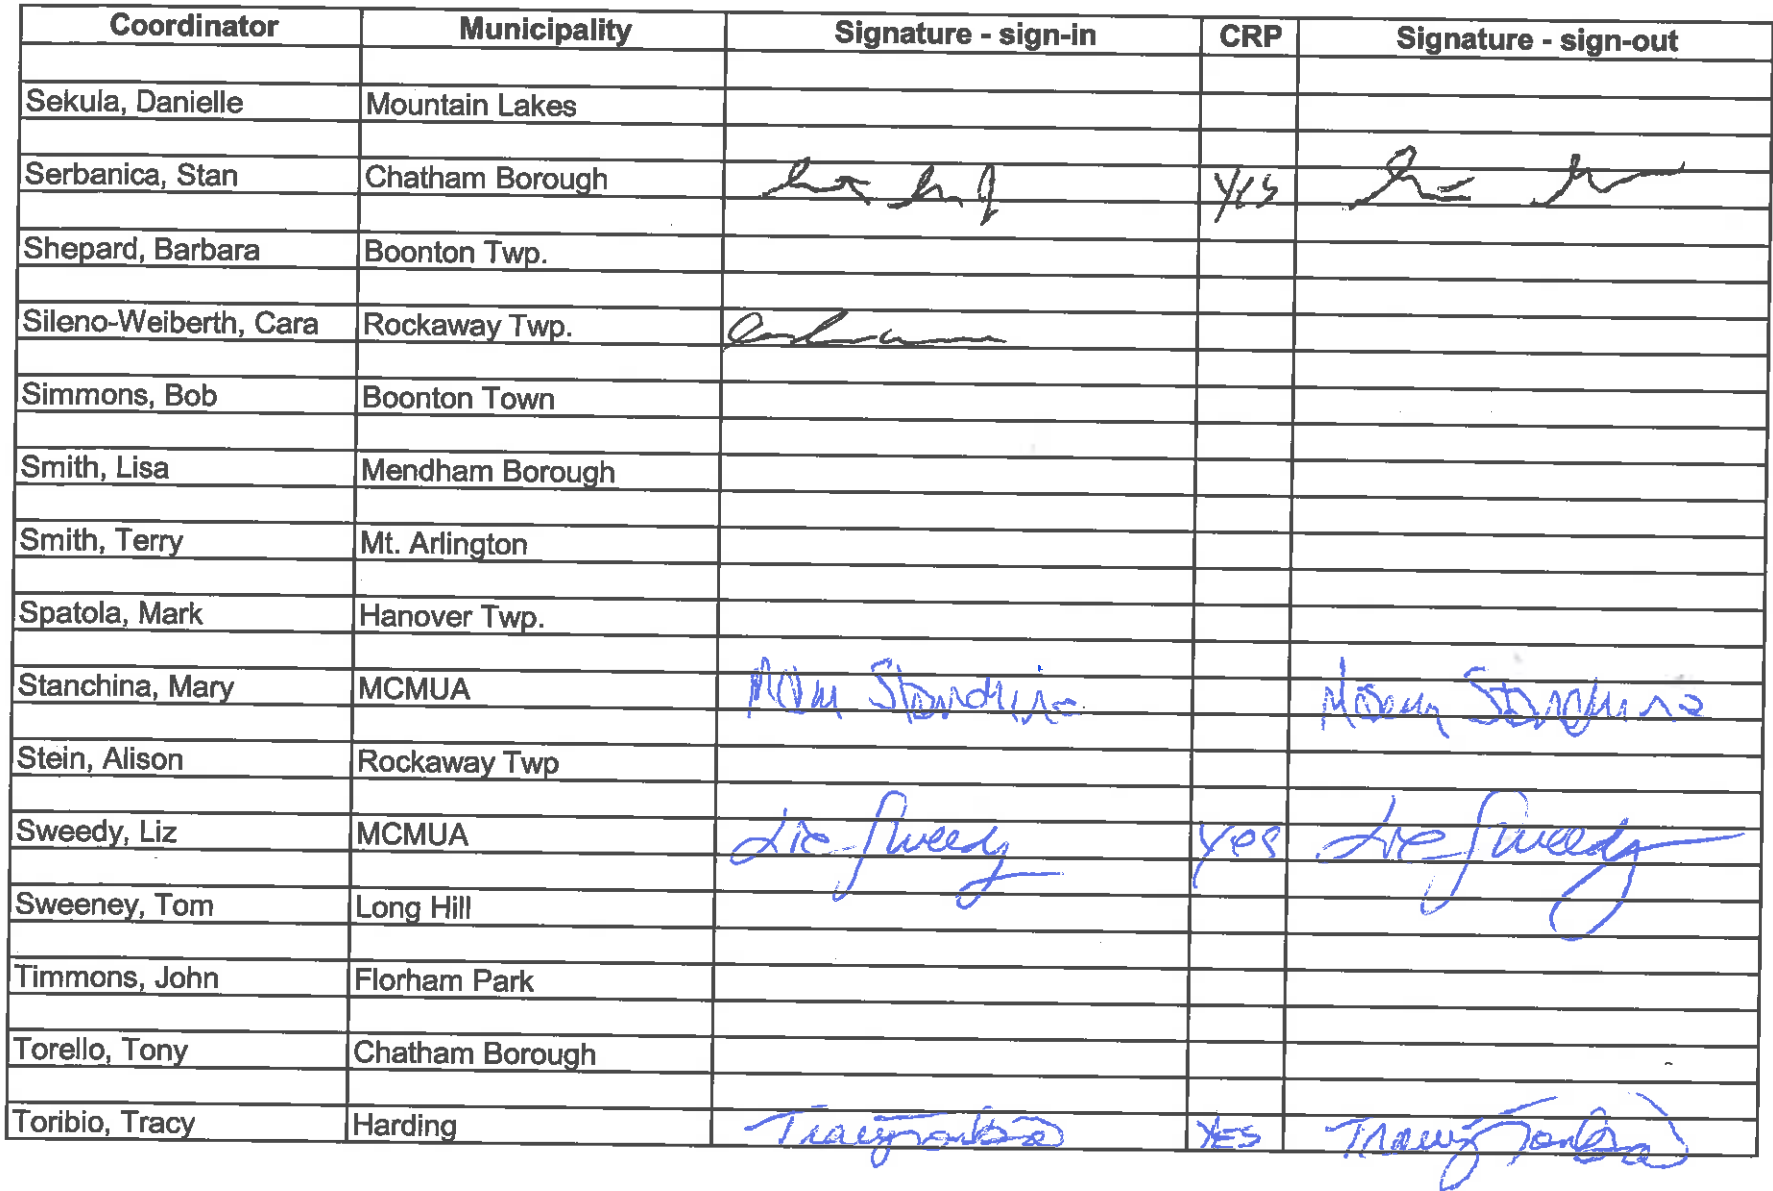 Coordinator Municipality Signature - sign-in CRP Signature - sign-out
Sekula, Danielle Mountain Lakes
Serbanica, Stan Chatham Borough Yes
Shepard, Barbara Boonton Twp.
Sileno-Weiberth, Cara Rockaway Twp.
Simmons, Bob Boonton Town
Smith, Lisa Mendham Borough
Smith, Terry Mt. Arlington
Spatola, Mark Hanover Twp.
Stanchina, Mary MCMUA Mary Stanchina Mary Stanchina
Stein, Alison Rockaway Twp
Sweedy, Liz MCMUA Liz Sweedy Yes Liz Sweedy
Sweeney, Tom Long Hill
Timmons, John Florham Park
Torello, Tony Chatham Borough
Toribio, Tracy Harding Tracy Toribio YES Tracy Toribio